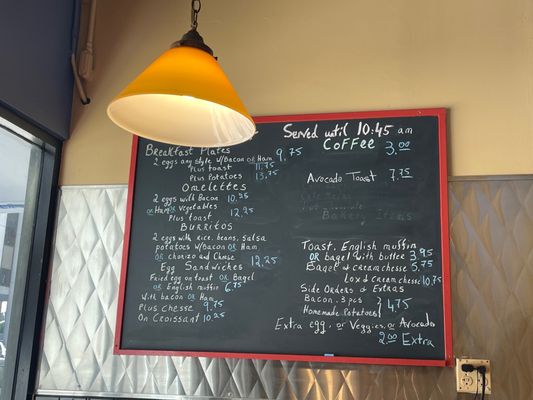 Breakfast Plates
2 eggs any style w/Bacon OR Ham 9.75
Plus toast 11.75
Plus Potatoes 13.75
Omelettes
2 eggs with Bacon 10.25
OR Ham OR Vegetables
Plus toast 12.25
Burritos
2 eggs with rice, beans, salsa
potatoes w/bacon OR Ham
OR chorizo and cheese 12.25
Egg Sandwiches
Fried egg on toast OR Bagel
OR English muffin 6.75
With bacon OR Ham
Plus chesse 9.75
On Croissant 10.25
Served until 10:45 am
Coffee 3.00
Avocado Toast 7.75
Bakery Items
Toast, English muffin
OR bagel with butter 3.95
Bagel & cream chesse 5.75
Lox & cream chesse 10.75
Side Orders & Extras
Bacon, 3 pcs
Homemade Potatoes } 4.75
Extra egg, or Veggies, or Avocado
2.00 Extra